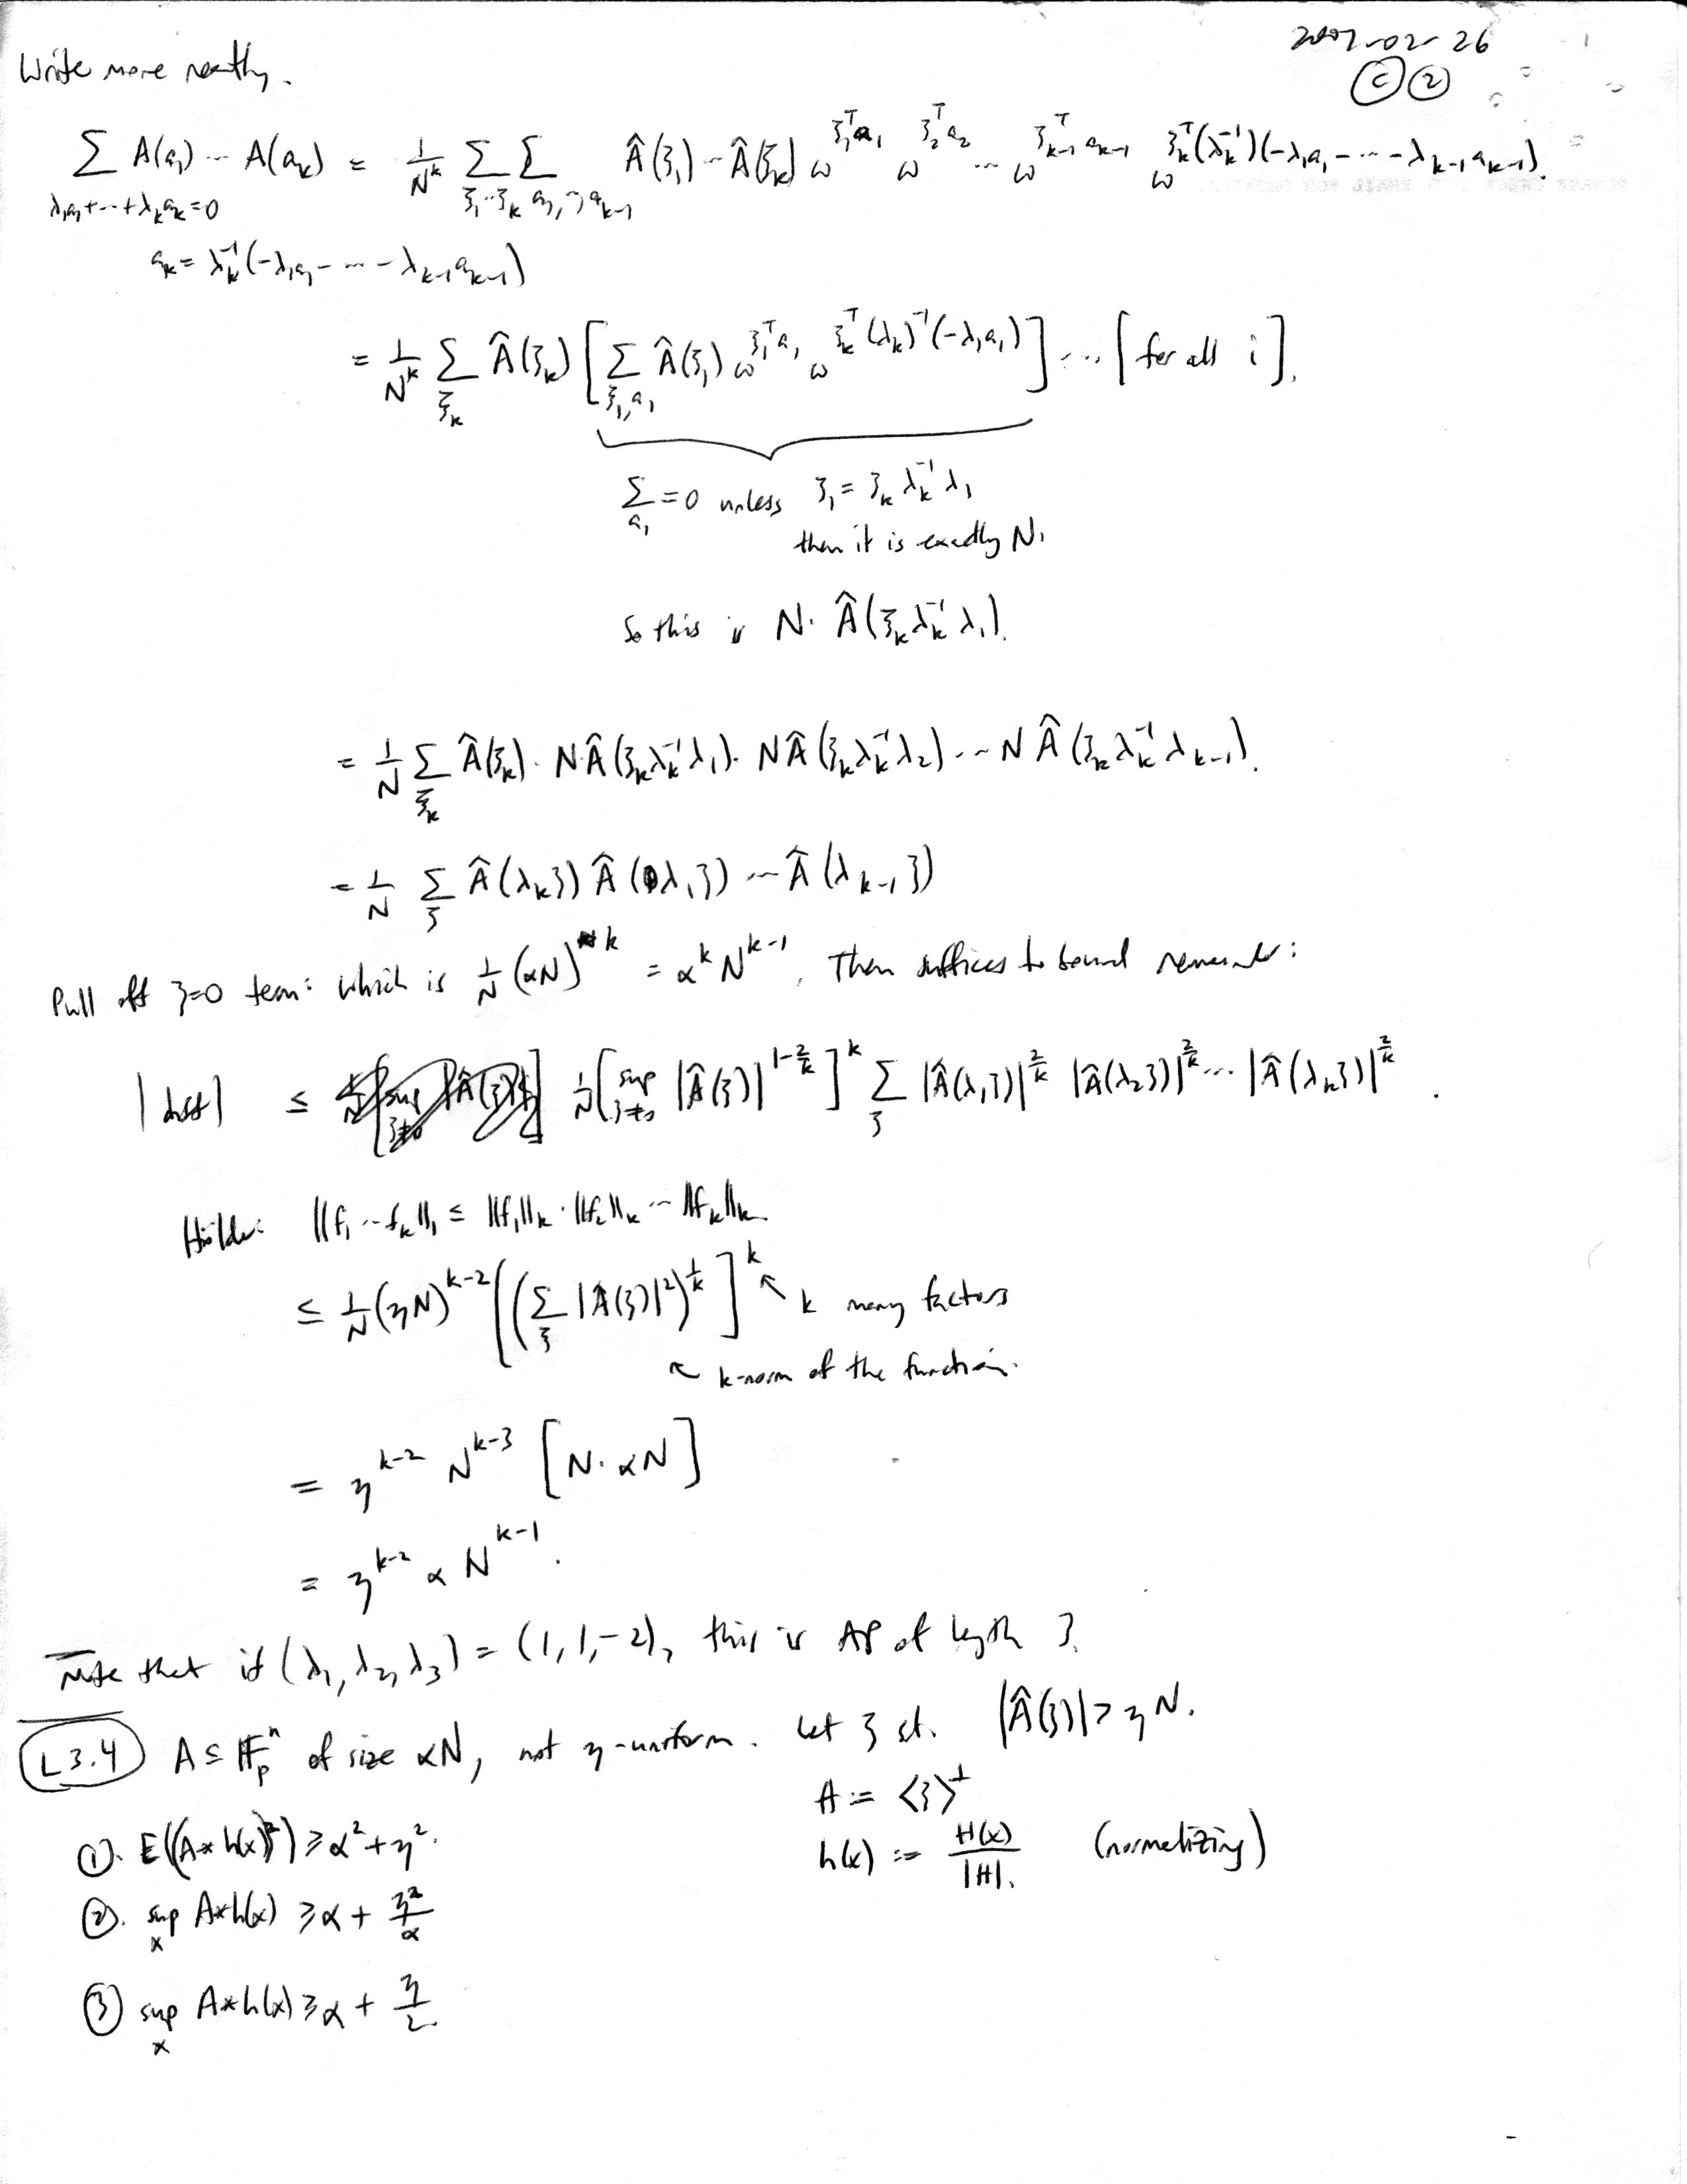 2007-02-26
Ⓒ ②
Write more neatly.
∑_{λ₁a₁+⋯+λₖaₖ=0} A(a₁)⋯A(aₖ) = 1/N^k ∑_{ξ₁⋯ξₖ} ∑_{a₁,⋯,a_{k-1}} Â(ξ₁)⋯Â(ξₖ) ω^{ξ₁ᵀa₁} ω^{ξ₂ᵀa₂} ⋯ ω^{ξ_{k-1}ᵀa_{k-1}} ω^{ξₖᵀ(λₖ⁻¹)(-λ₁a₁-⋯-λ_{k-1}a_{k-1})}.
aₖ = λₖ⁻¹(-λ₁a₁-⋯-λ_{k-1}a_{k-1})
= 1/N^k ∑_{ξₖ} Â(ξₖ) [∑_{ξ₁,a₁} Â(ξ₁) ω^{ξ₁ᵀa₁} ω^{ξₖᵀ(λₖ)⁻¹(-λ₁a₁)}] ⋯ [for all i].
∑_{a₁} = 0 unless ξ₁ = ξₖλₖ⁻¹λ₁
then it is exactly N.
So this is N·Â(ξₖλₖ⁻¹λ₁).
= 1/N ∑_{ξₖ} Â(ξₖ)·NÂ(ξₖλₖ⁻¹λ₁)·NÂ(ξₖλₖ⁻¹λ₂)⋯NÂ(ξₖλₖ⁻¹λ_{k-1}).
= 1/N ∑_ξ Â(λₖξ)Â(λ₁ξ)⋯Â(λ_{k-1}ξ)
Pull off ξ=0 term: which is 1/N (αN)^k = α^k N^{k-1}. Then suffices to bound remainder:
| | ≤ 1/N [sup_{ξ≠0} |Â(ξ)|^{1-2/k}]^k ∑_ξ |Â(λ₁ξ)|^{2/k} |Â(λ₂ξ)|^{2/k} ⋯ |Â(λₖξ)|^{2/k}.
Hölder: ‖f₁⋯fₖ‖₁ ≤ ‖f₁‖ₖ·‖f₂‖ₖ⋯‖fₖ‖ₖ
≤ 1/N (ηN)^{k-2} [(∑_ξ |Â(ξ)|²)^{1/k}]^k ↖ k many factors
↖ k-norm of the function.
= η^{k-2} N^{k-3} [N·αN]
= η^{k-2} α N^{k-1}.
Note that if (λ₁,λ₂,λ₃) = (1,1,-2), this is AP of length 3.
L3.4 A ⊆ 𝔽ₚⁿ of size αN, not η-uniform. Let ξ st. |Â(ξ)| > ηN.
A := ⟨ξ⟩^⊥
h(x) := H(x)/|H|. (normalizing)
①. E((A*h(x))²) ≥ α²+η².
②. sup_x A*h(x) ≥ α + η²/α
③ sup_x A*h(x) ≥ α + η/2.